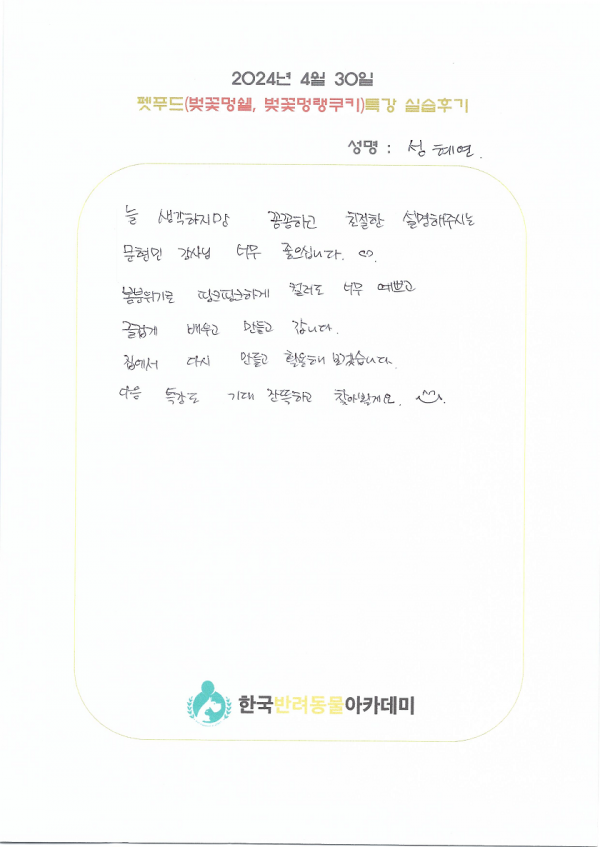 2024년 4월 30일
펫푸드(벚꽃멍쉘, 벚꽃멍랭쿠키)특강 실습후기
성명 : 성혜연.
늘 생각하지망 꼼꼼하고 친절한 설명해주시는
문형민 강사님 너무 좋으십니다.
봄분위기로 핑크핑크하게 컬러도 너무 예쁘고
즐겁게 배우고 만들고 갑니다.
집에서 다시 만들고 활용해 보겠습니다.
다음 특강도 기대 잔뜩하고 찾아뵐게요.
한국반려동물아카데미